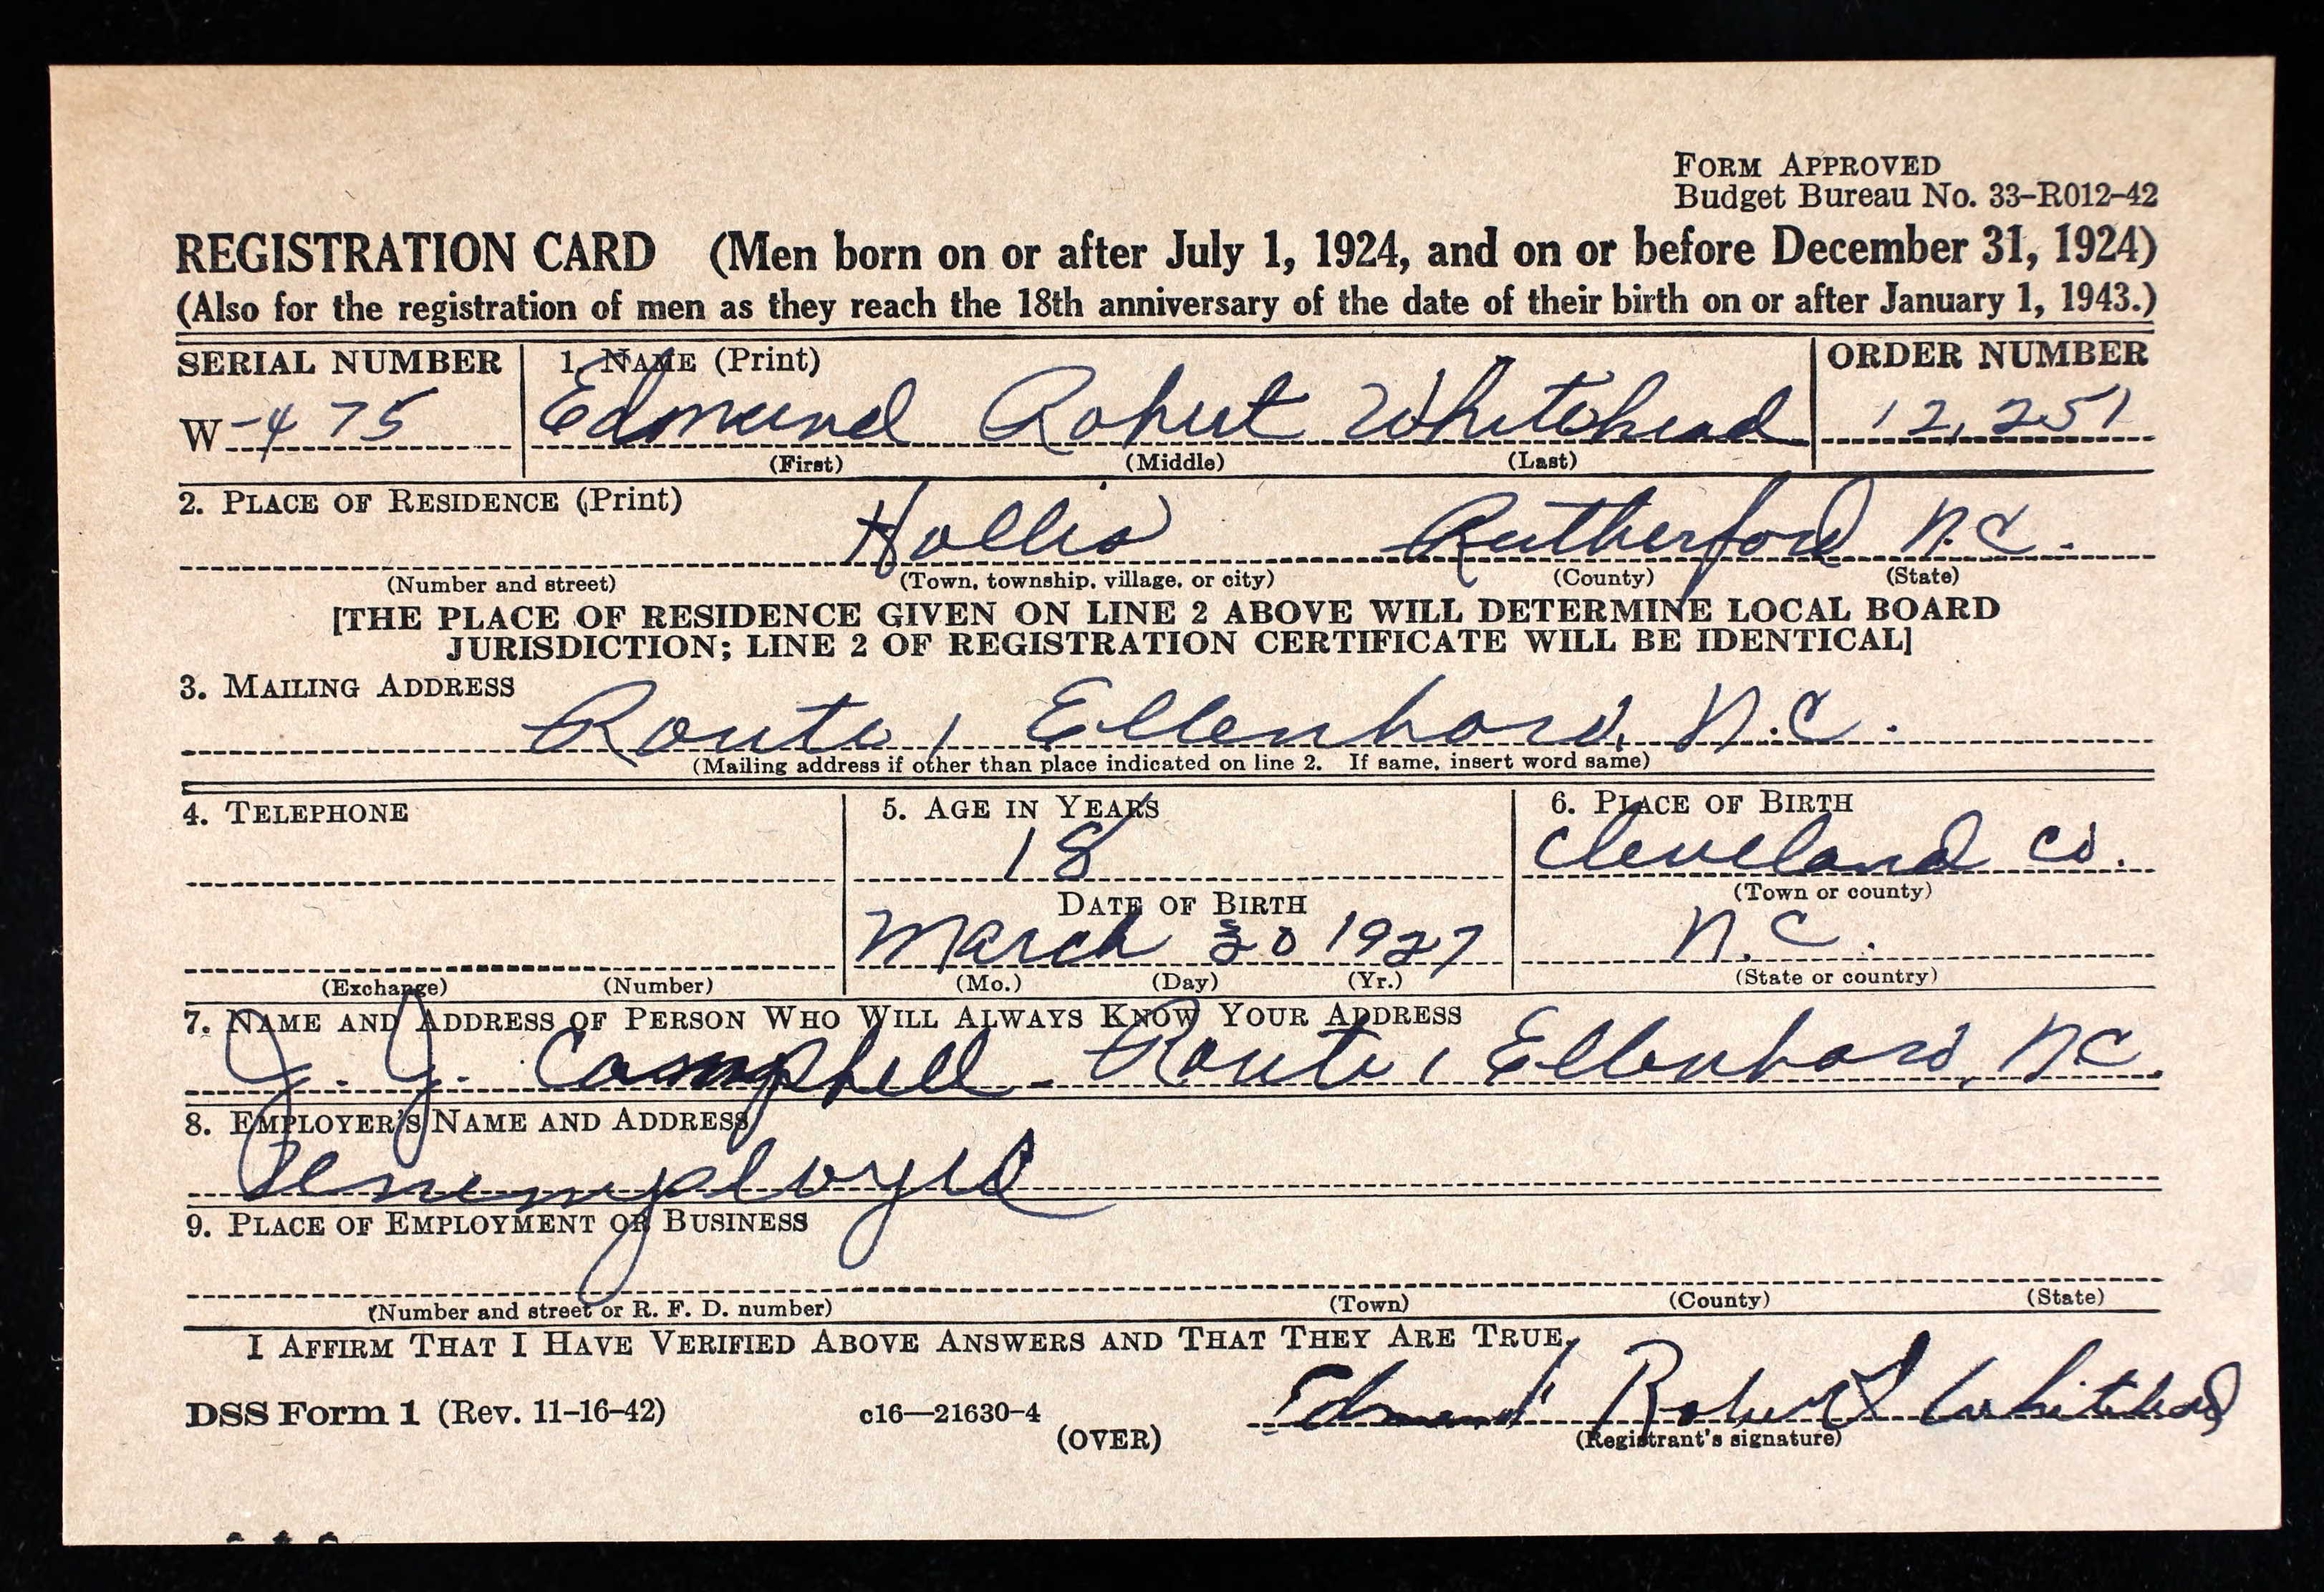 FORM APPROVED
Budget Bureau No. 33-R012-42
REGISTRATION CARD (Men born on or after July 1, 1924, and on or before December 31, 1924)
(Also for the registration of men as they reach the 18th anniversary of the date of their birth on or after January 1, 1943.)
SERIAL NUMBER 1. NAME (Print) ORDER NUMBER
W-475 Edmund Robert Whitehead 12,251
(First) (Middle) (Last)
2. PLACE OF RESIDENCE (Print)
Hollis Rutherford N.C.
(Number and street) (Town, township, village, or city) (County) (State)
[THE PLACE OF RESIDENCE GIVEN ON LINE 2 ABOVE WILL DETERMINE LOCAL BOARD
JURISDICTION; LINE 2 OF REGISTRATION CERTIFICATE WILL BE IDENTICAL]
3. MAILING ADDRESS
Route 1 Ellenboro, N.C.
(Mailing address if other than place indicated on line 2. If same, insert word same)
4. TELEPHONE 5. AGE IN YEARS 6. PLACE OF BIRTH
18 Cleveland Co.
(Town or county)
DATE OF BIRTH
March 30 1927 N.C.
(Exchange) (Number) (Mo.) (Day) (Yr.) (State or country)
7. NAME AND ADDRESS OF PERSON WHO WILL ALWAYS KNOW YOUR ADDRESS
J. Y. Campbell - Route 1 Ellenboro, NC.
8. EMPLOYER'S NAME AND ADDRESS
Unemployed
9. PLACE OF EMPLOYMENT OR BUSINESS
(Number and street or R. F. D. number) (Town) (County) (State)
I AFFIRM THAT I HAVE VERIFIED ABOVE ANSWERS AND THAT THEY ARE TRUE.
DSS Form 1 (Rev. 11-16-42) c16—21630-4 (OVER) Edmund Robert Whitehead
(Registrant's signature)